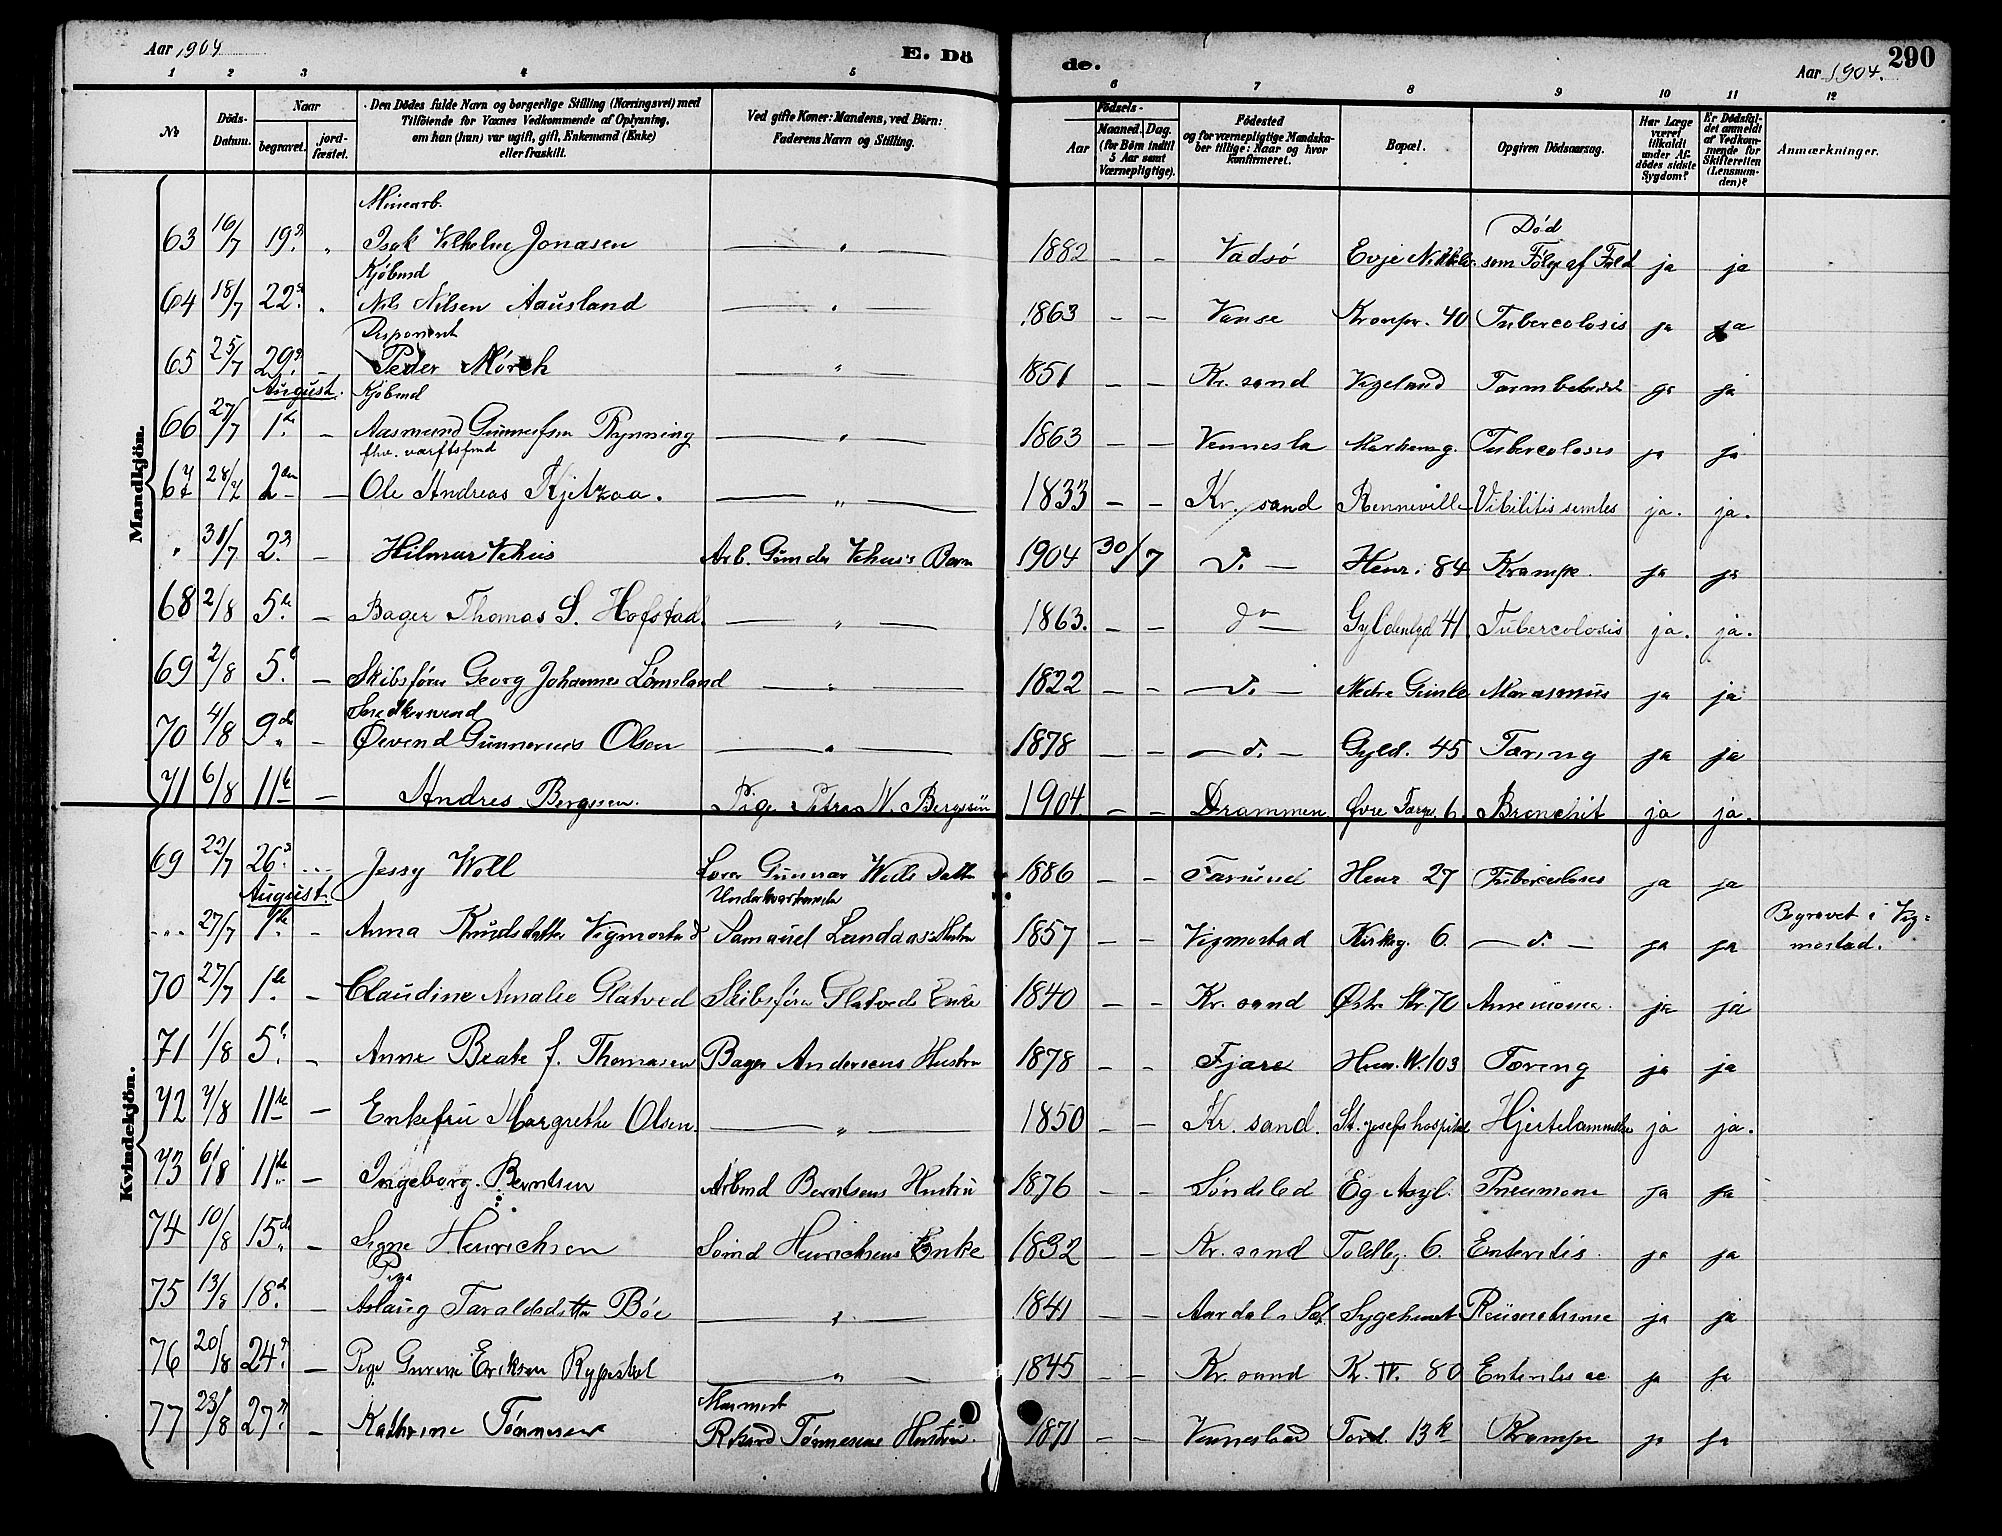 Aar 1904
E. Dö
de.
Aar 1904.
290
1 2 3 4 5 6 7 8 9 10 11 12
No
Döds-Datum.
Naar
begravet.
jord-fæstet.
Den Dödes fulde Navn og borgerlige Stilling (Næringsvei) med
Tilföiende for Voxnes Vedkommende af Oplysning,
om han (hun) var ugift, gift, Enkemand (Enke)
eller fraskilt.
Ved gifte Koner: Mandens, ved Börn:
Faderens Navn og Stilling.
Födsels-
Aar
Maaned. Dag.
(for Börn indtil
5 Aar samt
Værnepligtige).
Födested
og for værnepligtige Mandska-
ber tillige: Naar og hvor
konfirmeret.
Bopæl.
Opgiven Dödsaarsag.
Har Læge
været
tilkaldt
under Af-
dödes sidste
Sygdom?
Er Dödsfal-
det anmeldt
af Vedkom-
mende for
Skifteretten
(Lensman-
den)?
Anmærkninger.
Mandkjön.
Minearb.
63 16/7 19 Isak Vilhelm Jonasen — " — 1882 – – Vadsö Evje Død som Følge af Fald ja ja
Kjøbmd
64 18/7 22 Nils Nilsen Aausland — " — 1863 – – Vanse Kronpr. 40 Tubercolosis ja ja
Disponent
65 25/7 29 – Peder Mörch — " — 1851 – – Kr. sand Vigeland ja ja
August.
Kjøbmd
66 27/7 1ste – Aasmund Gunnufsen Rynning — " — 1863 – – Vennesla Markensg. Tubercolosis ja ja
fhv. varftsfmd
67 28/7 2den – Ole Andreas Kjetzaa. — " — 1833 – – Kr. sand Renneville ja. ja.
" 31/7 2 – Hilmar Vehus Arb. Gunder Vehus's Barn 1904 30/7 d. — Henr. 84 Krampe. ja ja
68 2/8 5te – Bager Thomas S. Hofstad. — " — 1863. – – do Gyldenlyd 41. Tubercolosis ja. ja.
69 2/8 5te – Skibsfører Georg Johannes Lømsland — " — 1822 – – — d. — Nedre Gimle Marasmus ja ja
Snedkersvend
70 4/8 9de – Øivend Gunnerius Olsen — " — 1878 – – — d. — Gyld. 45 Tæring ja ja
71 6/8 11te – Andres Bergssen. Pige Petra N. Bergssen 1904. – – Drammen Øvre Torvg. 6. Bronchit ja ja.
Kvindekjön.
69 22/7 26 Jessy Woll Gunnar Wolls Datter 1886 – – Farsund Henr 27 Tubercoloses ja ja
August.
27/7 1ste Anna Knudsdatter Vigmostad Samuel Landaas's Hustru 1857 – – Vigmostad Kirkeg. 6. — d. — ja ja Begravet i Vig=
mostad.
70 27/7 1ste – Claudine Amalie Glatved Skibsfører Glatveds Enke 1840 – – Kr. sand Østr. Str. 70 ja ja
71 1/8 5te – Anne Beate f. Thomasen Bager Andersens Hustru 1878 – – Fjære Henr. W. 103 Tæring ja ja
72 4/8 11te – Enkefru Margrethe Olsen. — " — 1850 – – Kr. sand. St. Josefs hospital Hjertelammelse ja ja.
73 6/8 11te – Ingeborg Berntsen Arbmd Berntsens Hustru 1876 – – Søndeled Eg Asyl. Pneumone ja ja
74 10/8 15de – Signe Henrichsen Sømd Henrichsens Enke 1832 – – Kr. sand Toldbg. 6. Enteritis. ja ja
Pige
75 13/8 18de – Aslaug Taraldsdttr Böe — " — 1841 – – Aardal i Sæt. Sygehuset ja ja
76 20/8 24 – Pige Gurine Eriksen Rypestøl — " — 1845 – – Kr. sand K. IV. 80 Enterites ac. ja ja
77 23/8 27 – Kathrine Tönnesen Rikard Tönnesens Hustru. 1871 – – Vennesland Tord. 13 Krampe ja ja